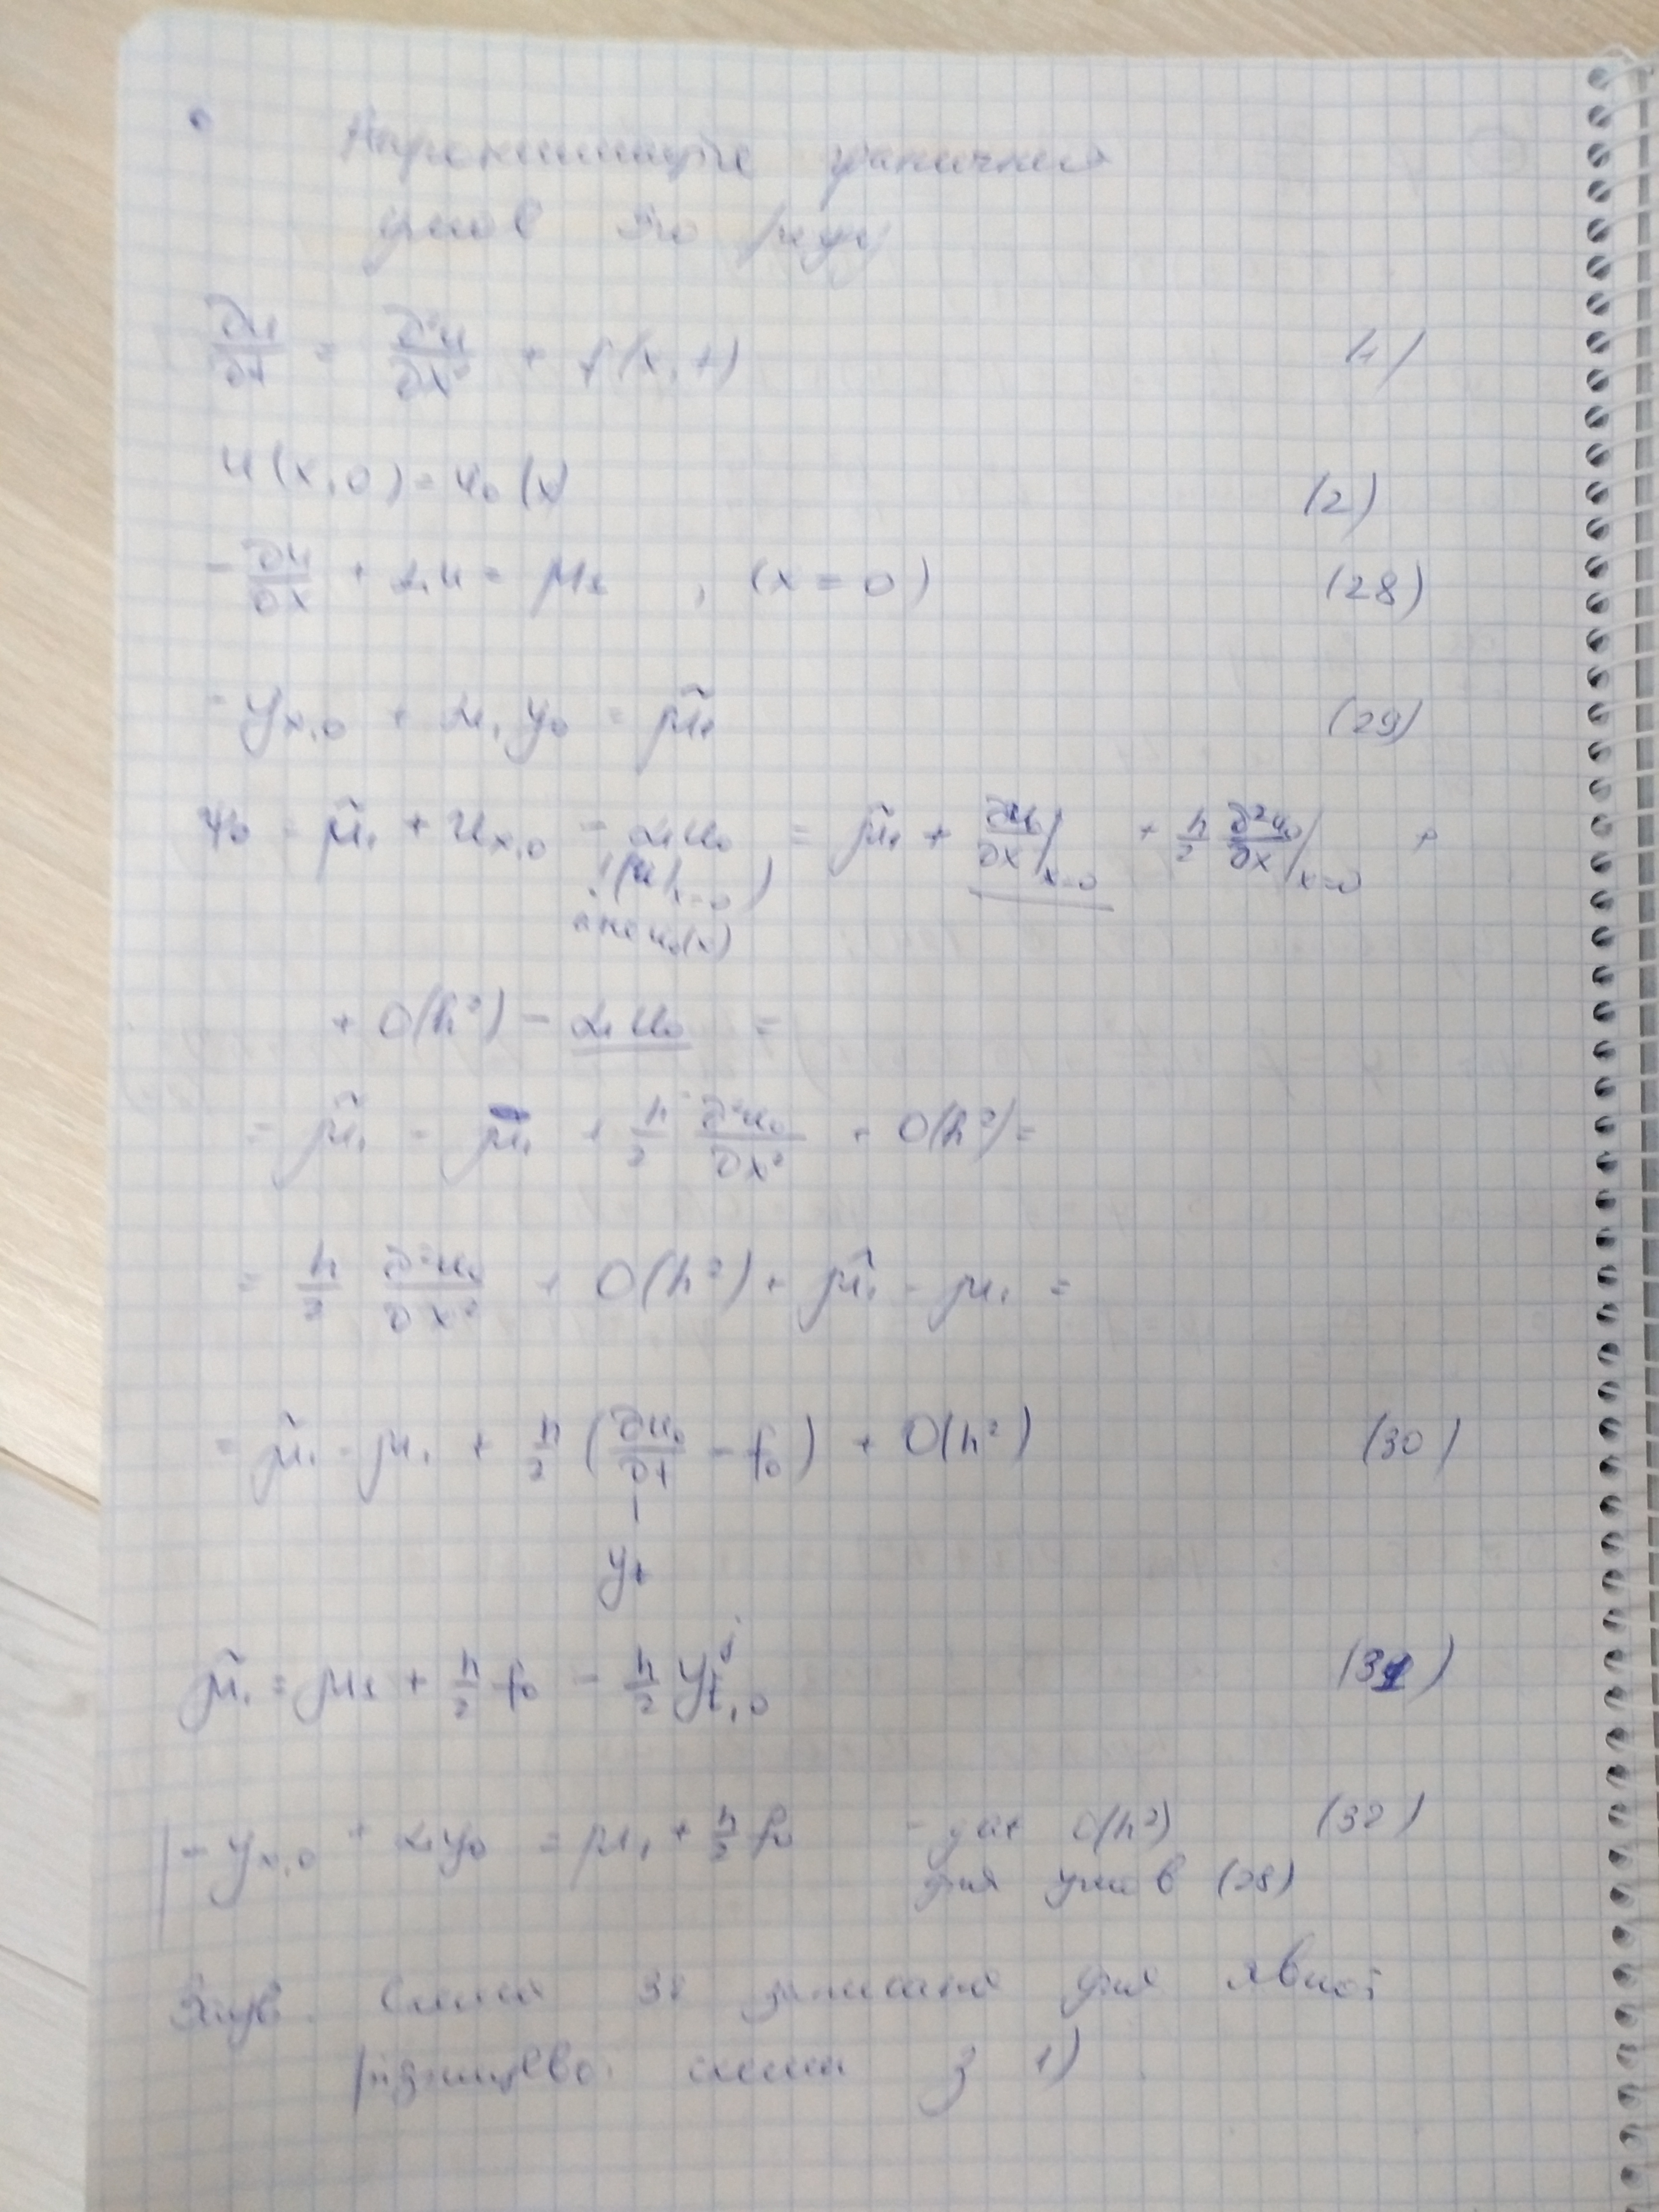 Апроксимація граничних
умов 3го роду
∂u/∂t = ∂²u/∂x² + f(x,t) (1)
u(x,0) = u₀(x) (2)
- ∂u/∂x + α₁u = μ₁ , (x = 0) (28)
- yₓ,₀ + α₁y₀ = μ̃₁ (29)
ψ₀ = μ̃₁ + uₓ,₀ - α₁u₀ = μ̃₁ + ∂u₀/∂x|ₓ₌₀ + h/2 ∂²u₀/∂x|ₓ₌₀ +
(u|ₓ₌₀)
а не u₀(x)
+ O(h²) - α₁u₀ =
= μ̃₁ - μ₁ + h/2 ∂²u₀/∂x² + O(h²) =
= h/2 ∂²u₀/∂x² + O(h²) + μ̃₁ - μ₁ =
= μ̃₁ - μ₁ + h/2 (∂u₀/∂t - f₀) + O(h²) (30)
yₜ
μ̃₁ = μ₁ + h/2 f₀ - h/2 yʲₜ,₀ (31)
- yₓ,₀ + α₁y₀ = μ₁ + h/2 f₀ - дає O(h²) (32)
для умов (28)
Заув. Схема 32 записана для явної
різницевої схеми з 1)